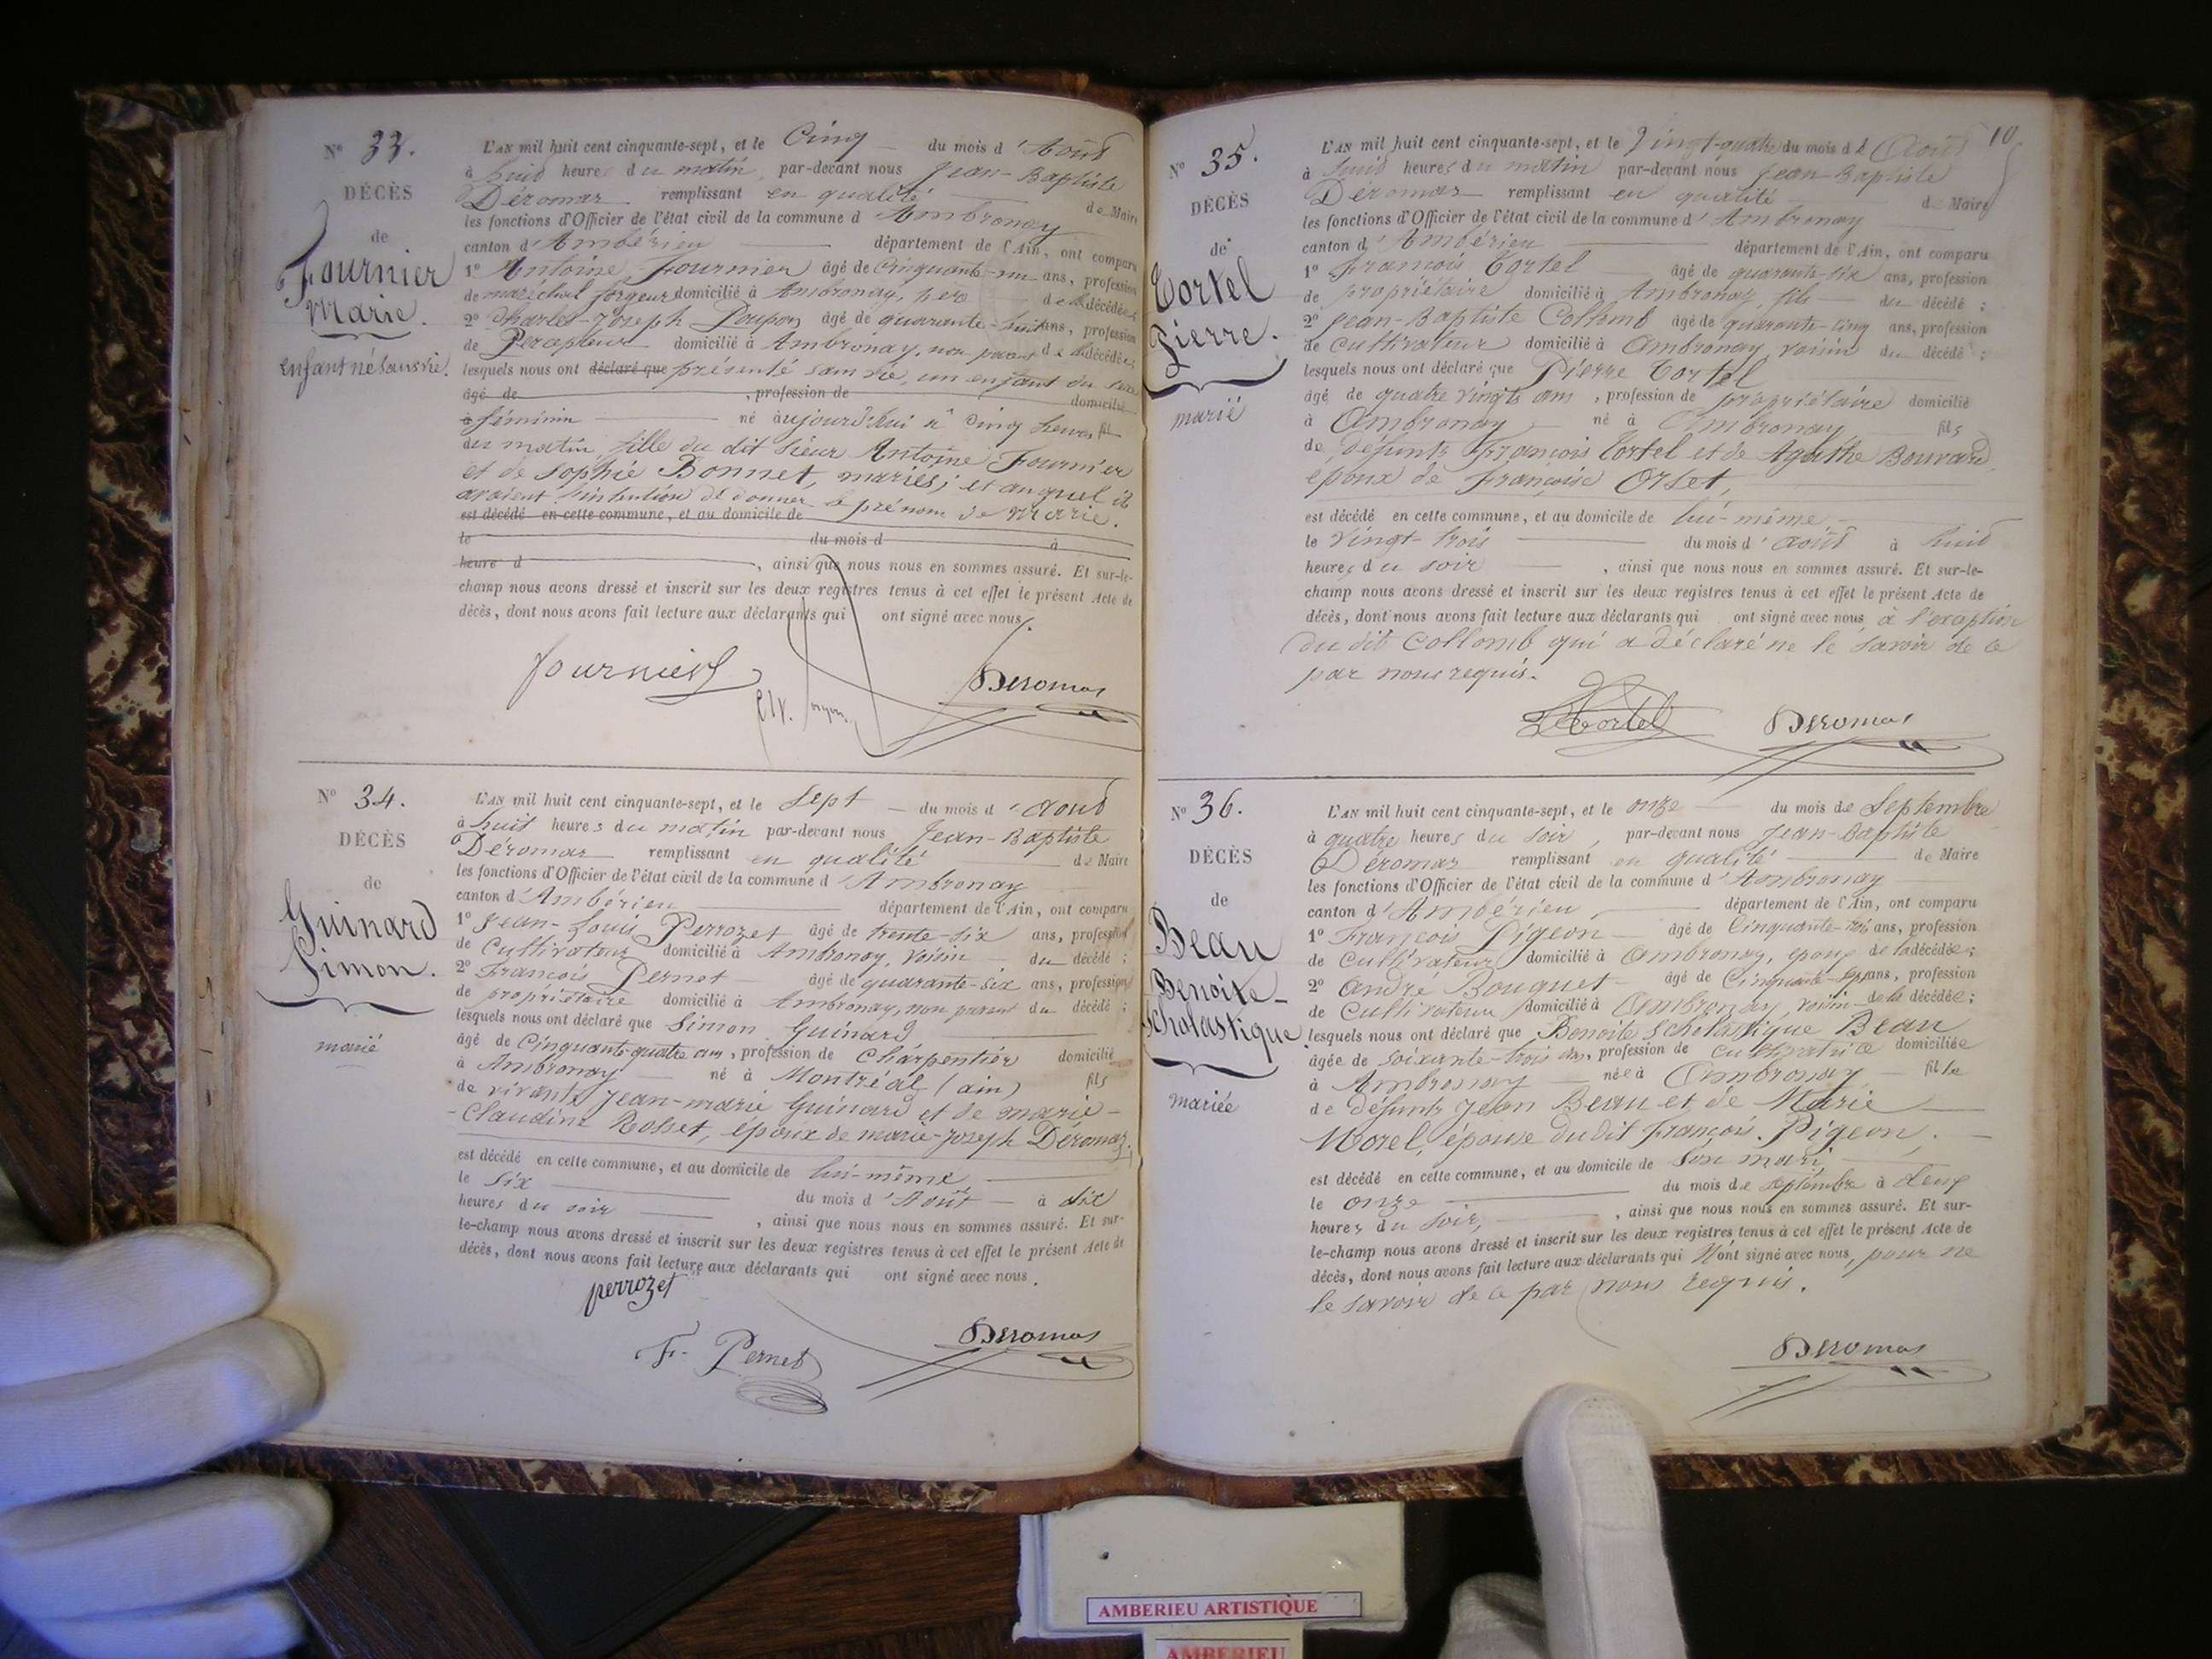 N° 33.
DÉCÈS
de
Fournier
Marie.
enfant né sans vie.
L'AN mil huit cent cinquante-sept, et le Cinq du mois d'Août
à huit heures du matin, par-devant nous Jean-Baptiste
Déromas remplissant en qualité de Maire
les fonctions d'Officier de l'état civil de la commune d'Ambronay
canton d'Ambérieu département de l'Ain, ont comparu
1° Antoine Fournier âgé de cinquante-un ans, profession
de maréchal forgeur domicilié à Ambronay, père de la décédée;
2° Charles-Joseph Poupon âgé de quarante-huit ans, profession
de Percepteur domicilié à Ambronay, non parent de la décédée;
lesquels nous ont déclaré que présenté sans vie, un enfant du sexe
âgé de , profession de domicilié
à féminin né aujourd'hui à cinq heures fil
du matin, fille du dit sieur Antoine Fournier
et de Sophie Bonnet, mariés; et auquel ils
avaient l'intention de donner le prénom de Marie.
est décédé en cette commune, et au domicile de
le du mois d à
heure d , ainsi que nous nous en sommes assuré. Et sur-le-
champ nous avons dressé et inscrit sur les deux registres tenus à cet effet le présent Acte de
décès, dont nous avons fait lecture aux déclarants qui ont signé avec nous.
Fournier
Deromas
N° 34.
DÉCÈS
de
Guinard
Simon.
marié
L'AN mil huit cent cinquante-sept, et le sept du mois d'août
à huit heures du matin par-devant nous Jean-Baptiste
Déromas remplissant en qualité de Maire
les fonctions d'Officier de l'état civil de la commune d'Ambronay
canton d'Ambérieu département de l'Ain, ont comparu
1° Jean-Louis Perrozet âgé de trente-six ans, profession
de Cultivateur domicilié à Ambronay, voisin du décédé;
2° François Pernet âgé de quarante-six ans, profession
de propriétaire domicilié à Ambronay, non parent du décédé;
lesquels nous ont déclaré que Simon Guinard
âgé de Cinquante-quatre ans, profession de Charpentier domicilié
à Ambronay né à Montréal (ain) fils
de vivants Jean-marie Guinard et de marie-
-Claudine Rosset, époux de marie-Joseph Déromas,
est décédé en cette commune, et au domicile de lui-même
le six du mois d'Août à dix
heures du soir , ainsi que nous nous en sommes assuré. Et sur-
le-champ nous avons dressé et inscrit sur les deux registres tenus à cet effet le présent Acte de
décès, dont nous avons fait lecture aux déclarants qui ont signé avec nous.
perrozet
F. Pernet
Deromas
10
N° 35.
DÉCÈS
de
Tortel
Pierre.
marié
L'AN mil huit cent cinquante-sept, et le Vingt-quatre du mois d'Août
à huit heures du matin par-devant nous Jean-Baptiste
Déromas remplissant en qualité de Maire
les fonctions d'Officier de l'état civil de la commune d'Ambronay
canton d'Ambérieu département de l'Ain, ont comparu
1° François Tortel âgé de quarante-six ans, profession
de propriétaire domicilié à Ambronay, fils du décédé;
2° Jean-Baptiste Collomb âgé de quarante-cinq ans, profession
de Cultivateur domicilié à Ambronay, voisin du décédé;
lesquels nous ont déclaré que Pierre Tortel
âgé de quatre vingts ans, profession de propriétaire domicilié
à Ambronay né à Ambronay fils
de défunts François Tortel et de Agathe Bouvard
époux de Françoise Orset,
est décédé en cette commune, et au domicile de lui-même
le Vingt-trois du mois d'août à huit
heures du soir , ainsi que nous nous en sommes assuré. Et sur-le-
champ nous avons dressé et inscrit sur les deux registres tenus à cet effet le présent Acte de
décès, dont nous avons fait lecture aux déclarants qui ont signé avec nous, à l'exception
du dit Collomb qui a déclaré ne le savoir de ce
par nous requis.
Tortel
Deromas
N° 36.
DÉCÈS
de
Beau
Benoite-
Scholastique.
mariée
L'AN mil huit cent cinquante-sept, et le onze du mois de Septembre
à quatre heures du soir, par-devant nous Jean-Baptiste
Déromas remplissant en qualité de Maire
les fonctions d'Officier de l'état civil de la commune d'Ambronay
canton d'Ambérieu département de l'Ain, ont comparu
1° François Pigeon âgé de Cinquante-trois ans, profession
de Cultivateur domicilié à Ambronay, époux de la décédée;
2° André Bouquet âgé de Cinquante-sept ans, profession
de Cultivateur domicilié à Ambronay, voisin de la décédée;
lesquels nous ont déclaré que Benoite Scholastique Beau
âgée de soixante-trois ans, profession de cultivatrice domiciliée
à Ambronay née à Ambronay fille
de défunts Jean Beau et de Marie
Morel, épouse du dit François Pigeon,
est décédé en cette commune, et au domicile de son mari
le onze du mois de septembre à deux
heures du soir, , ainsi que nous nous en sommes assuré. Et sur-
le-champ nous avons dressé et inscrit sur les deux registres tenus à cet effet le présent Acte de
décès, dont nous avons fait lecture aux déclarants qui n'ont signé avec nous, pour ne
le savoir de ce par nous requis.
Deromas
AMBERIEU ARTISTIQUE
AMBERIEU